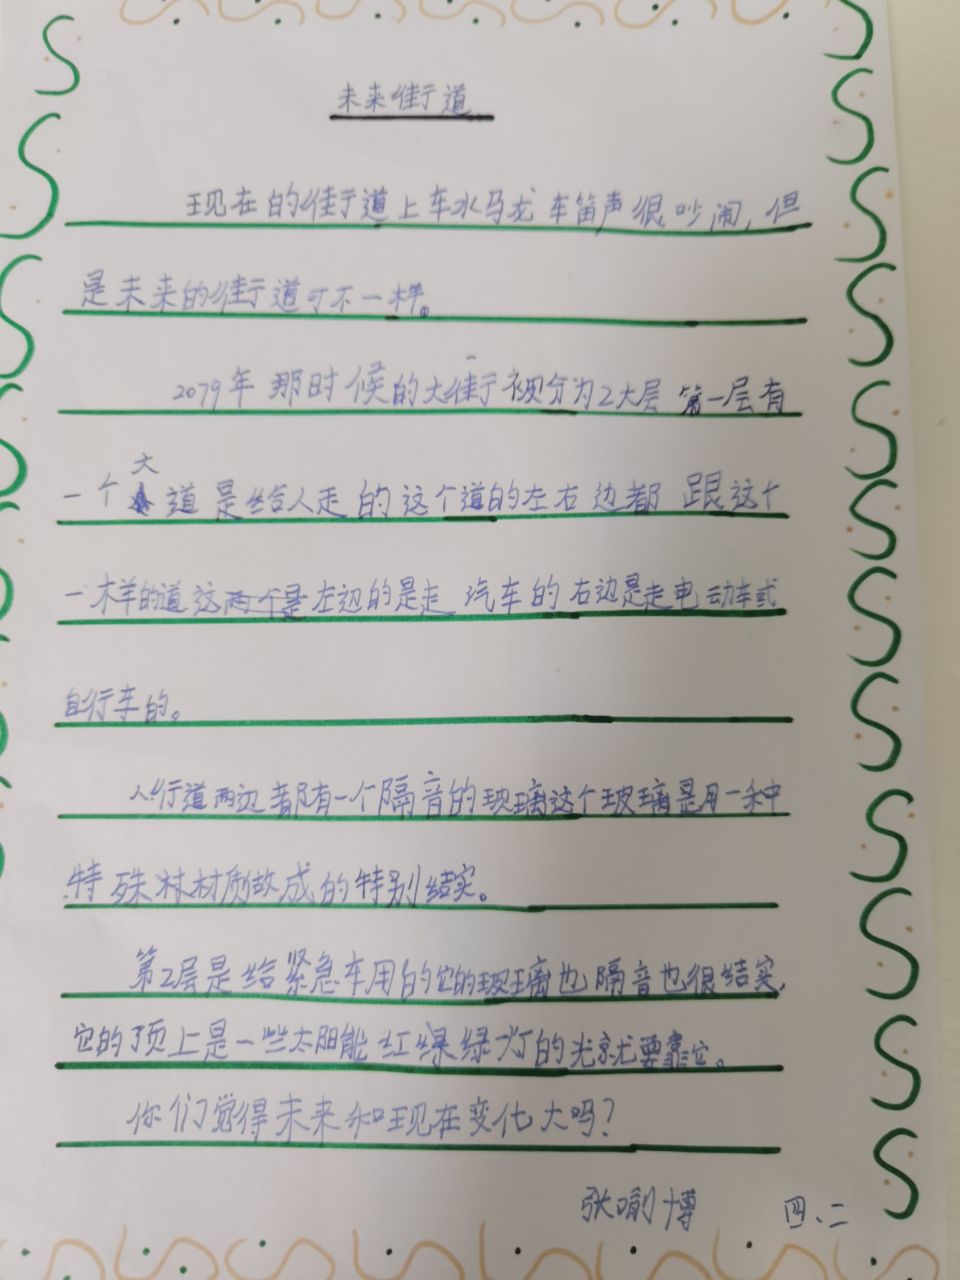 未来街道
现在的街道上车水马龙车笛声很吵闹,但
是未来的街道可不一样。
2079年那时候的大街被分为2大层第一层有
一个大道是给人走的这个道的左右边都跟这个
一样的道这两个是左边的是走汽车的右边是走电动车或
自行车的。
人行道两边都有一个隔音的玻璃这个玻璃是用一种
特殊材质做成的特别结实。
第2层是给紧急车用的它的玻璃也隔音也很结实,
它的顶上是一些太阳能红绿绿灯的光就要靠它。
你们觉得未来和现在变化大吗?
张喻博 四、二